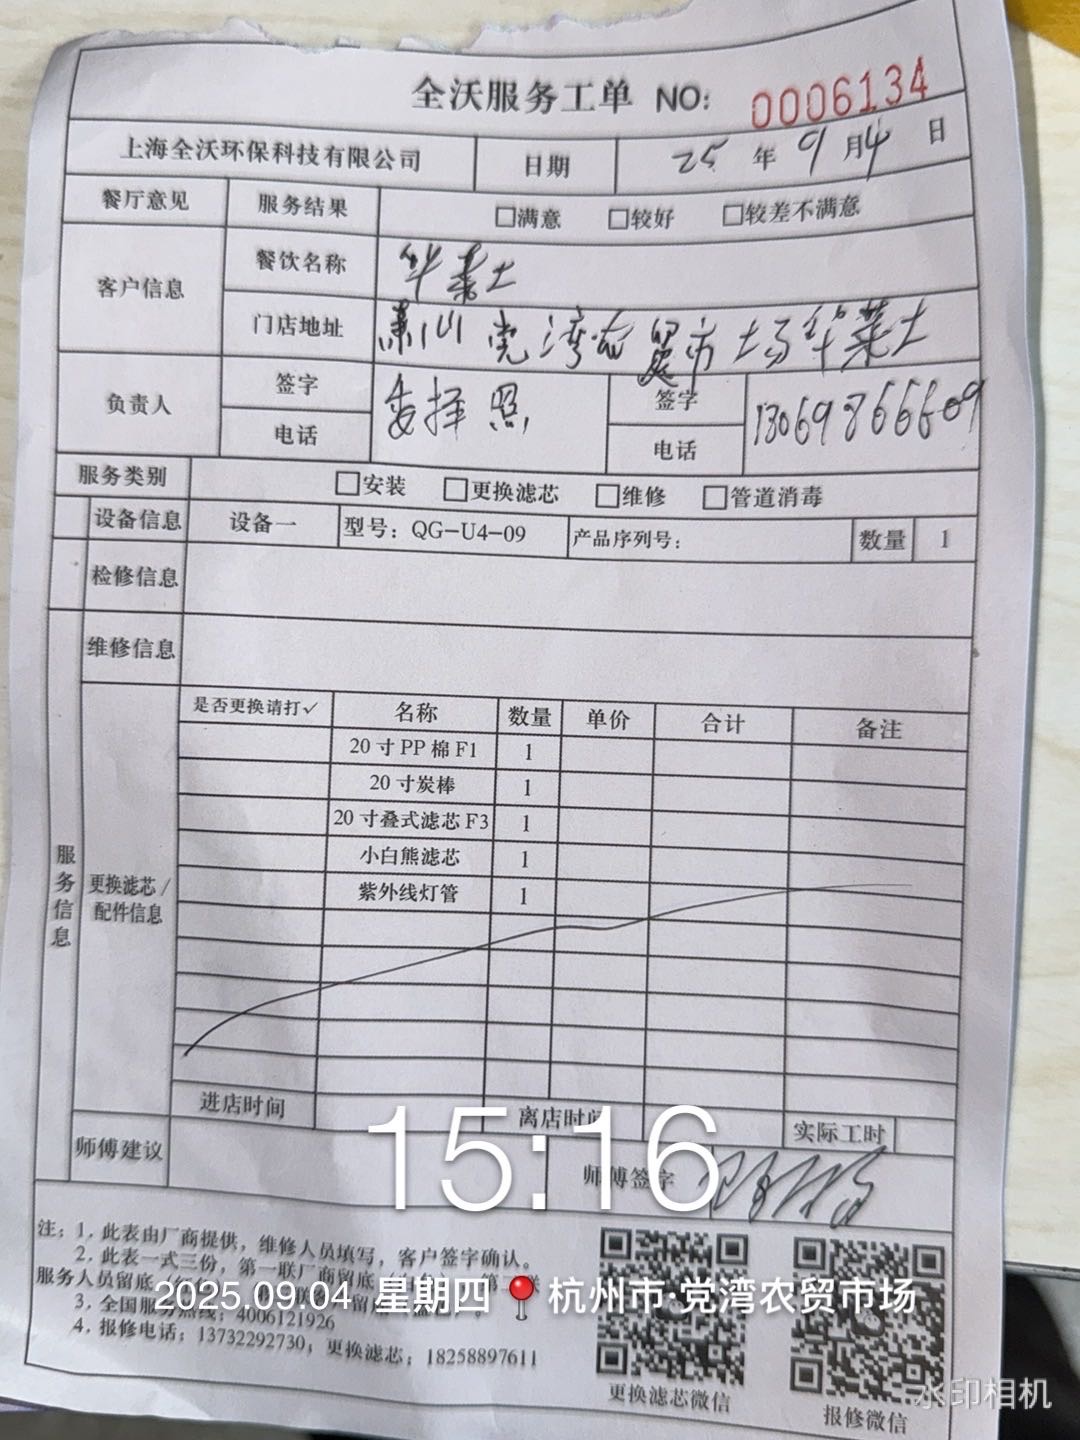 全沃服务工单 NO: 0006134
上海全沃环保科技有限公司 日期 25 年 9 月 4 日
餐厅意见 服务结果 □满意 □较好 □较差不满意
客户信息 餐饮名称 华莱士
门店地址 萧山党湾农贸市场华莱士
负责人 签字 择照 签字
电话 电话 13069866609
服务类别 □安装 □更换滤芯 □维修 □管道消毒
设备信息 设备一 型号：QG-U4-09 产品序列号： 数量 1
检修信息
维修信息
服务信息
更换滤芯/
配件信息
是否更换请打✓ 名称 数量 单价 合计 备注
20寸PP棉F1 1
20寸炭棒 1
20寸叠式滤芯F3 1
小白熊滤芯 1
紫外线灯管 1
进店时间 离店时间 实际工时
师傅建议 师傅签字
15:16
注：1. 此表由厂商提供，维修人员填写，客户签字确认。
2. 此表一式三份，第一联厂商留底
服务人员留底
3. 全国服务热线：4006121926
4. 报修电话：13732292730，更换滤芯：18258897611
2025.09.04 星期四 杭州市·党湾农贸市场
更换滤芯微信
报修微信
水印相机